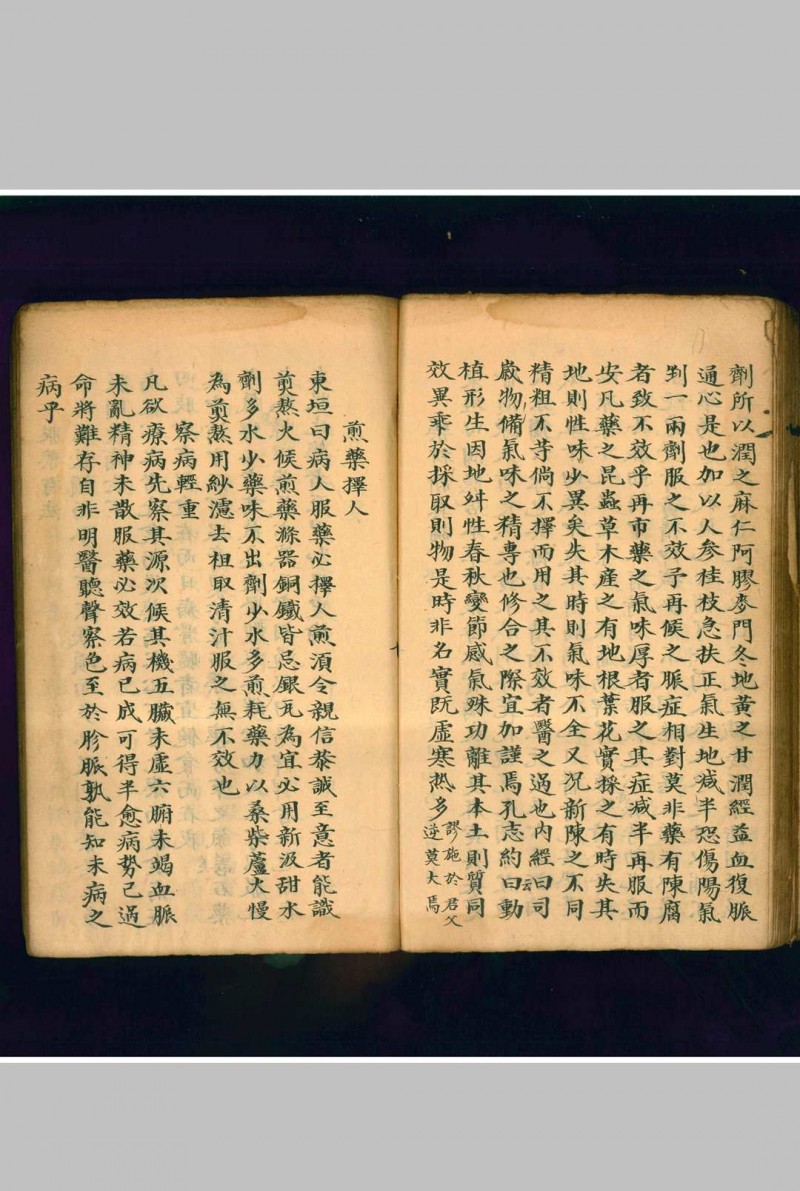 劑所以潤之麻仁阿膠麥門冬地黃之甘潤經益血復脈
通心是也加以人参桂枝急扶正氣生地減半恐傷陽氣
剉一兩劑服之不效予再候之脈症相對莫非藥有陳腐
者致不效乎再市藥之氣味厚者服之其症減半再服而
安凡藥之昆蟲草木產之有地根葉花實採之有時失其
地則性味少異矣失其時則氣味不全又况新陳之不同
精粗不等倘不擇而用之其不效者醫之過也内經曰司
嵗物備氣味之精專也修合之際宜加謹焉孔志約曰動
植形生因地舛性春秋變節感氣殊功離其本土則質同
效異乖於採取則物是時非名實既虛寒热多
謬施於君父
逆莫大焉
煎藥擇人
東垣曰病人服藥必擇人煎須令親信恭誠至意者能識
煎熬火候煎藥滌器銅鐵皆忌銀瓦為宜必用新汲甜水
劑多水少藥味不出劑少水多煎耗藥力以桑柴蘆火慢
為煎熬用紗濾去柤取清汁服之無不效也
察病輕重
凡欲療病先察其源次候其機五臟未虛六腑未竭血脈
未亂精神未散服藥必效若病已成可得半愈病势已過
命將難存自非明醫聽聲察色至於胗脈孰能知未病之
病乎